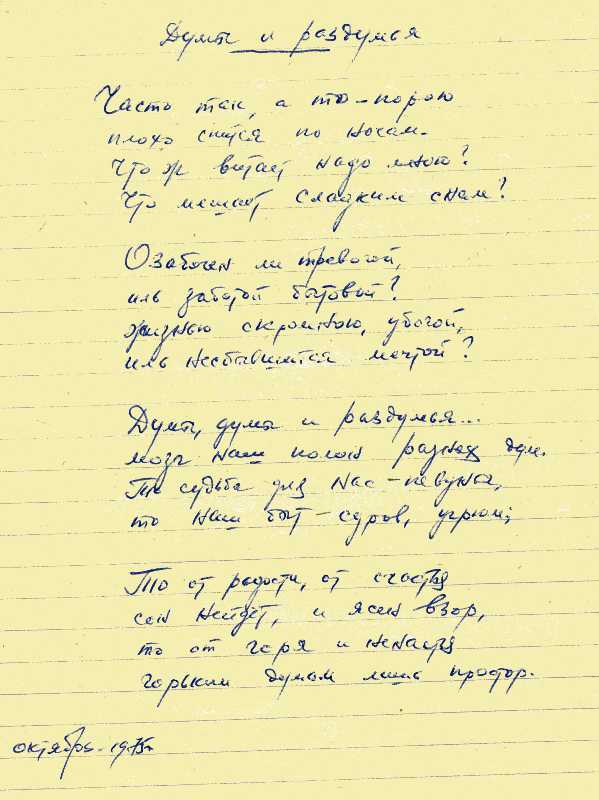 Думы и раздумья
Часто так, а то-порою
плохо спится по ночам.
Что ж витает надо мною?
Что мешает сладким снам?
Озабочен ли тревогой,
иль заботой бытовой?
жизнью скромною, убогой,
иль несбывшимися мечтой?
Думы, думы и раздумья...
мозг наш полон разных дум.
То судьба для нас - певунья,
то наш быт - суров, угрюм;
То от радости, от счастья
сон нейдёт, и ясен взор,
то от горя и ненастья
горьким думам лишь простор.
октябрь - 1975г